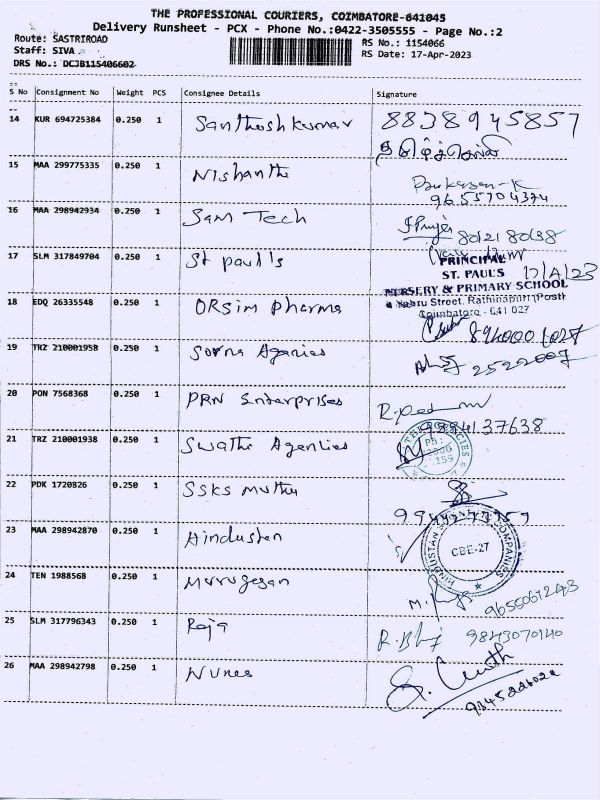 THE PROFESSIONAL COURIERS, COIMBATORE-641045
Delivery Runsheet - PCX - Phone No.:0422-3505555 - Page No.:2
Route: SASTRIROAD
Staff: SIVA
DRS No.: DCJB115406602
RS No.: 1154066
RS Date: 17-Apr-2023
S No Consignment No Weight PCS Consignee Details Signature
14 KUR 694725384 0.250 1 Santhosh kumar 8838945857
தமிழ்ச்செல்வி
15 MAA 299775335 0.250 1 Nishanthi
9655704374
16 MAA 298942934 0.250 1 Sam Tech
80121 80138
17 SLM 317849704 0.250 1 St paul's
PRINCIPAL
ST. PAUL'S 17/4/23
NURSERY & PRIMARY SCHOOL
Nehru Street, Rathinapuri (Post)
Coimbatore - 641 027
18 EDQ 26335548 0.250 1 ORSim Pharma
894000 1027
19 TRZ 210001958 0.250 1 Sorna Agenies
2522007
20 PON 7568368 0.250 1 PRN Enterprises
9884137638
21 TRZ 210001938 0.250 1 Swathi Agenties
22 PDK 1720826 0.250 1 SSKS muthu
23 MAA 298942870 0.250 1 Hindustan
HINDUSTAN COMPANIES
CBE-27
24 TEN 1988568 0.250 1 Murugesan
9655061243
25 SLM 317796343 0.250 1 Raja
9843070140
26 MAA 298942798 0.250 1 Nunes